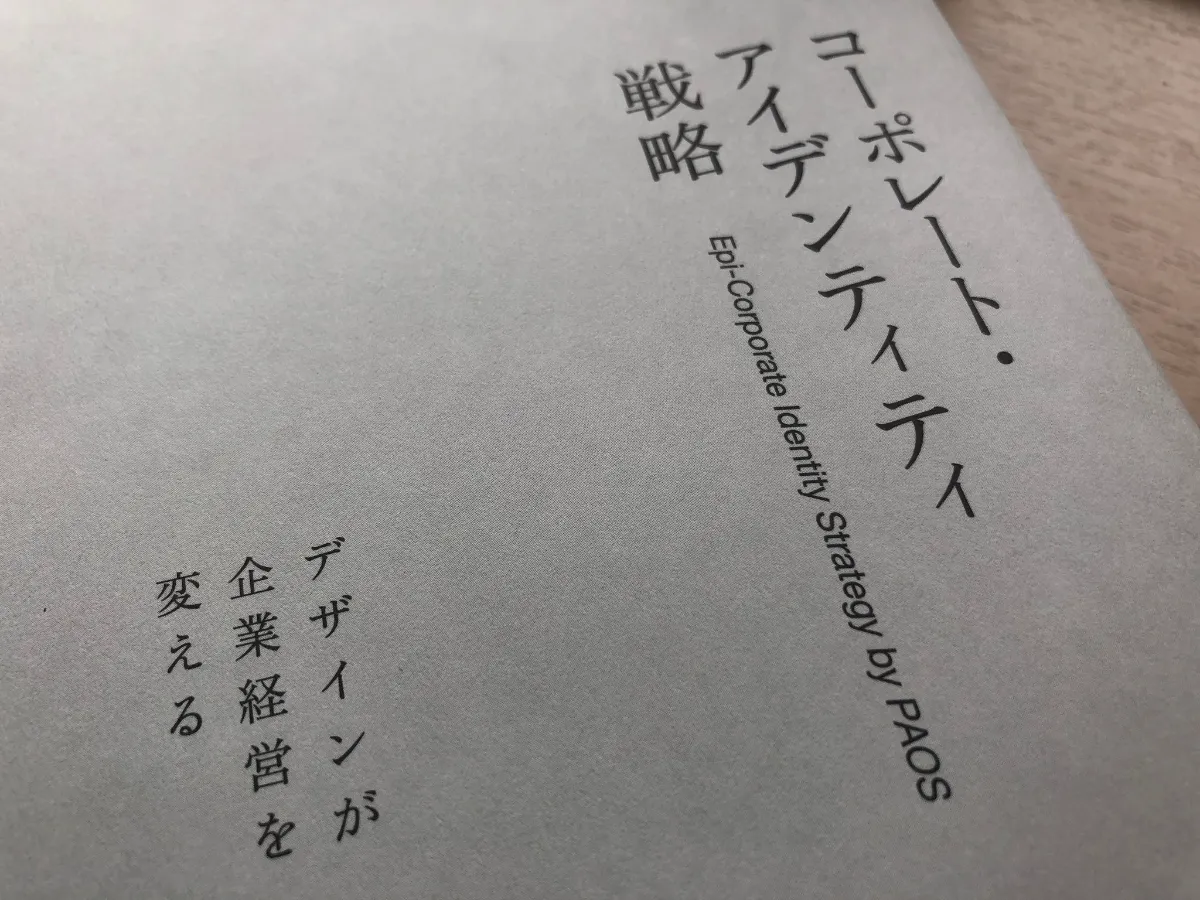 コーポレート・
アイデンティティ
戦略
Epi-Corporate Identity Strategy by PAOS
デザインが
企業経営を
変える